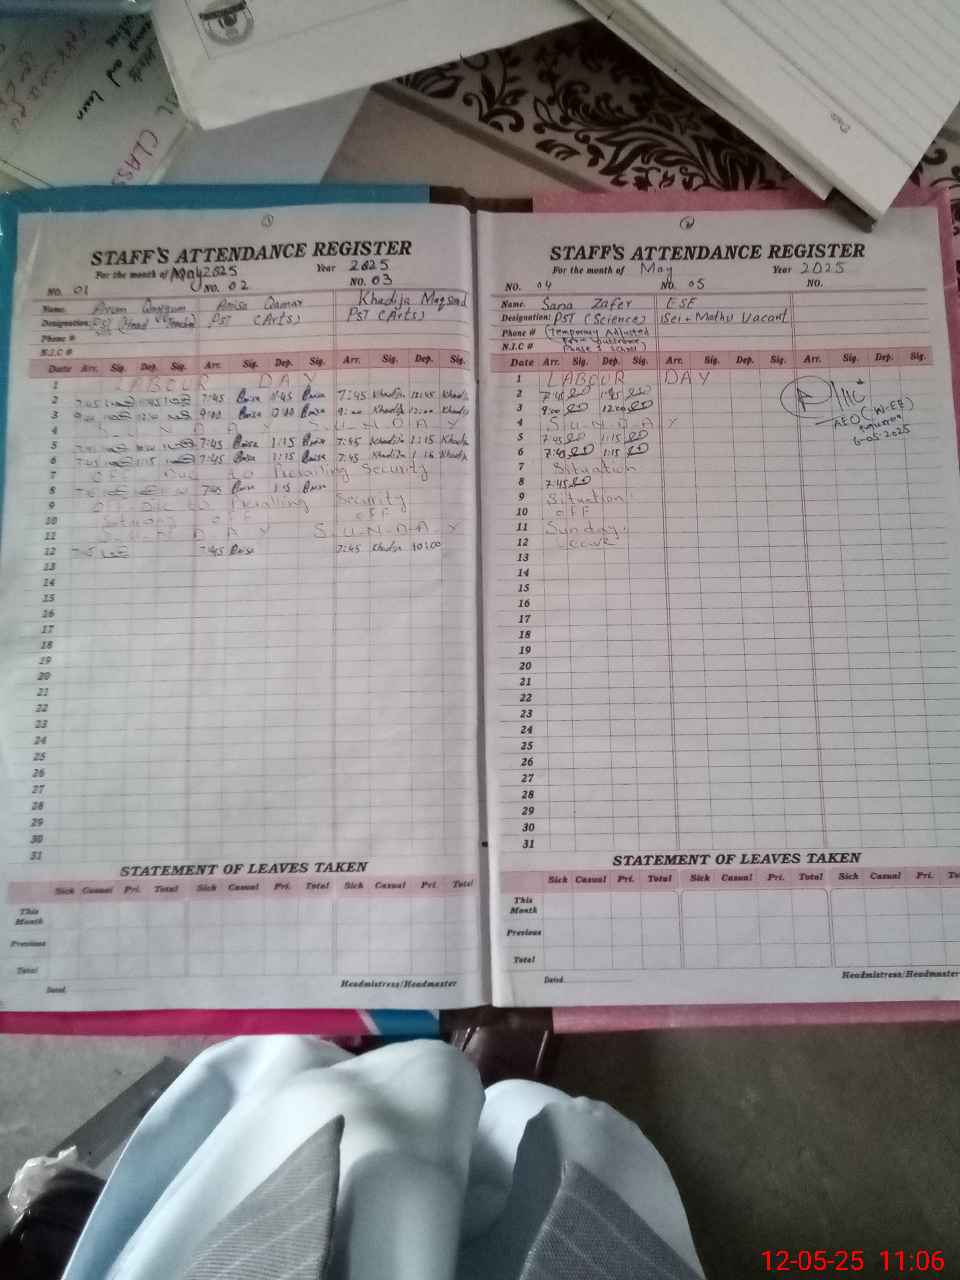 and learn
CLASS
Date
1
STAFF'S ATTENDANCE REGISTER
For the month of May 2025 Year 2025
NO. 01 NO. 02 NO. 03
Name: Anum Qayyum Anisa Qamar Khadija Maqsood
Designation: PST (Head Teacher) PST (Arts) PST (Arts)
Phone #
N.I.C #
Date Arr. Sig. Dep. Sig. Arr. Sig. Dep. Sig. Arr. Sig. Dep. Sig.
1 LABOUR DAY
2 7:45 12:45 7:45 Anisa 12:45 Anisa 7:45 Khadija 12:45 Khadija
3 9:00 12:00 9:00 Anisa 12:00 Anisa 9:00 Khadija 12:00 Khadija
4 S U N D A Y S.U.N.D.A.Y
5 7:45 7:45 Anisa 1:15 Anisa 7:45 Khadija 1:15 Khadija
6 7:45 1:15 7:45 Anisa 1:15 Anisa 7:45 Khadija 1:15 Khadija
7 OFF Due to Prevailing Security
8 7:45 7:45 Anisa 1:15 Anisa
9 Off Due to Prevailing Security
10 Situations off off
11 S U N D A Y S.U.N.D.A.Y
12 7:45 7:45 Anisa 7:45 Khadija 10:00
13
14
15
16
17
18
19
20
21
22
23
24
25
26
27
28
29
30
31
STATEMENT OF LEAVES TAKEN
Sick Casual Pri. Total Sick Casual Pri. Total Sick Casual Pri. Total
This Month
Previous
Total
Dated Headmistress/Headmaster
2
STAFF'S ATTENDANCE REGISTER
For the month of May Year 2025
NO. 04 NO. 05 NO.
Name. Sana Zafer ESE
Designation: PST (Science) (Sci + Math) Vacant
Phone # (Temporary Adjusted
N.I.C # Phase School)
Date Arr. Sig. Dep. Sig. Arr. Sig. Dep. Sig. Arr. Sig. Dep. Sig.
1 LABOUR DAY
2 7:45 12:45
3 9:00 12:00
4 S.U.N.D.A Y
5 7:45 1:15
6 7:45 1:15
7 Situation
8 7:45
9 Situation
10 off
11 Sunday
12 Leave
13
14
15
16
17
18
19
20
21
22
23
24
25
26
27
28
29
30
31
AEO (W-EE)
6-05-2025
STATEMENT OF LEAVES TAKEN
Sick Casual Pri. Total Sick Casual Pri. Total Sick Casual Pri.
This Month
Previous
Total
Dated Headmistress/Headmaster
12-05-25 11:06